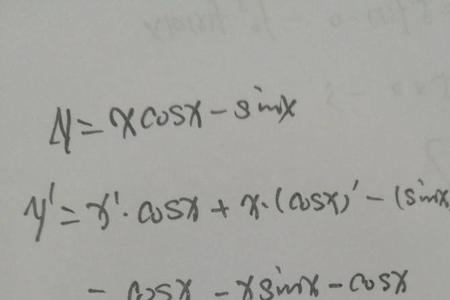 y=xcosx-sinx
y'=x'·cosx+x·(cosx)'-(sinx
=cosx-xsinx-cosx